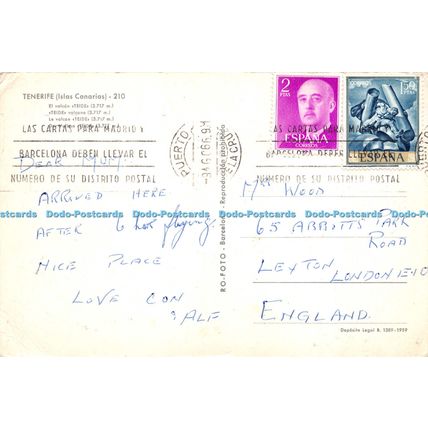 TENERIFE (Islas Canarias) - 210
El volcán «TEIDE» (3.717 m.)
«TEIDE» volcano (3.717 m.)
Le volcan «TEIDE» (3.717 m.)
LAS CARTAS PARA MADRID Y
BARCELONA DEBEN LLEVAR EL
NUMERO DE SU DISTRITO POSTAL
DEAR
ARRIVED HERE
AFTER 6 hrs flying
NICE PLACE
LOVE CON
& ALF
PUERTO
DE LA CRUZ
RO-FOTO - Barcelona - Reproducción prohibida
2
PTAS
ESPAÑA
CORREOS
CORREOS
1'50
PTAS
ESPAÑA
LAS CARTAS PARA MADRID Y
BARCELONA DEBEN LLEVAR EL
NUMERO DE SU DISTRITO POSTAL
WOOD
65 ABBOTTS PARK
ROAD
LEYTON
LONDON E-10
ENGLAND
Depósito Legal B. 1389-1959
Dodo-Postcards Dodo-Postcards Dodo-Postcards Dodo-Postcards Dodo-Postcards Dodo-Postcards